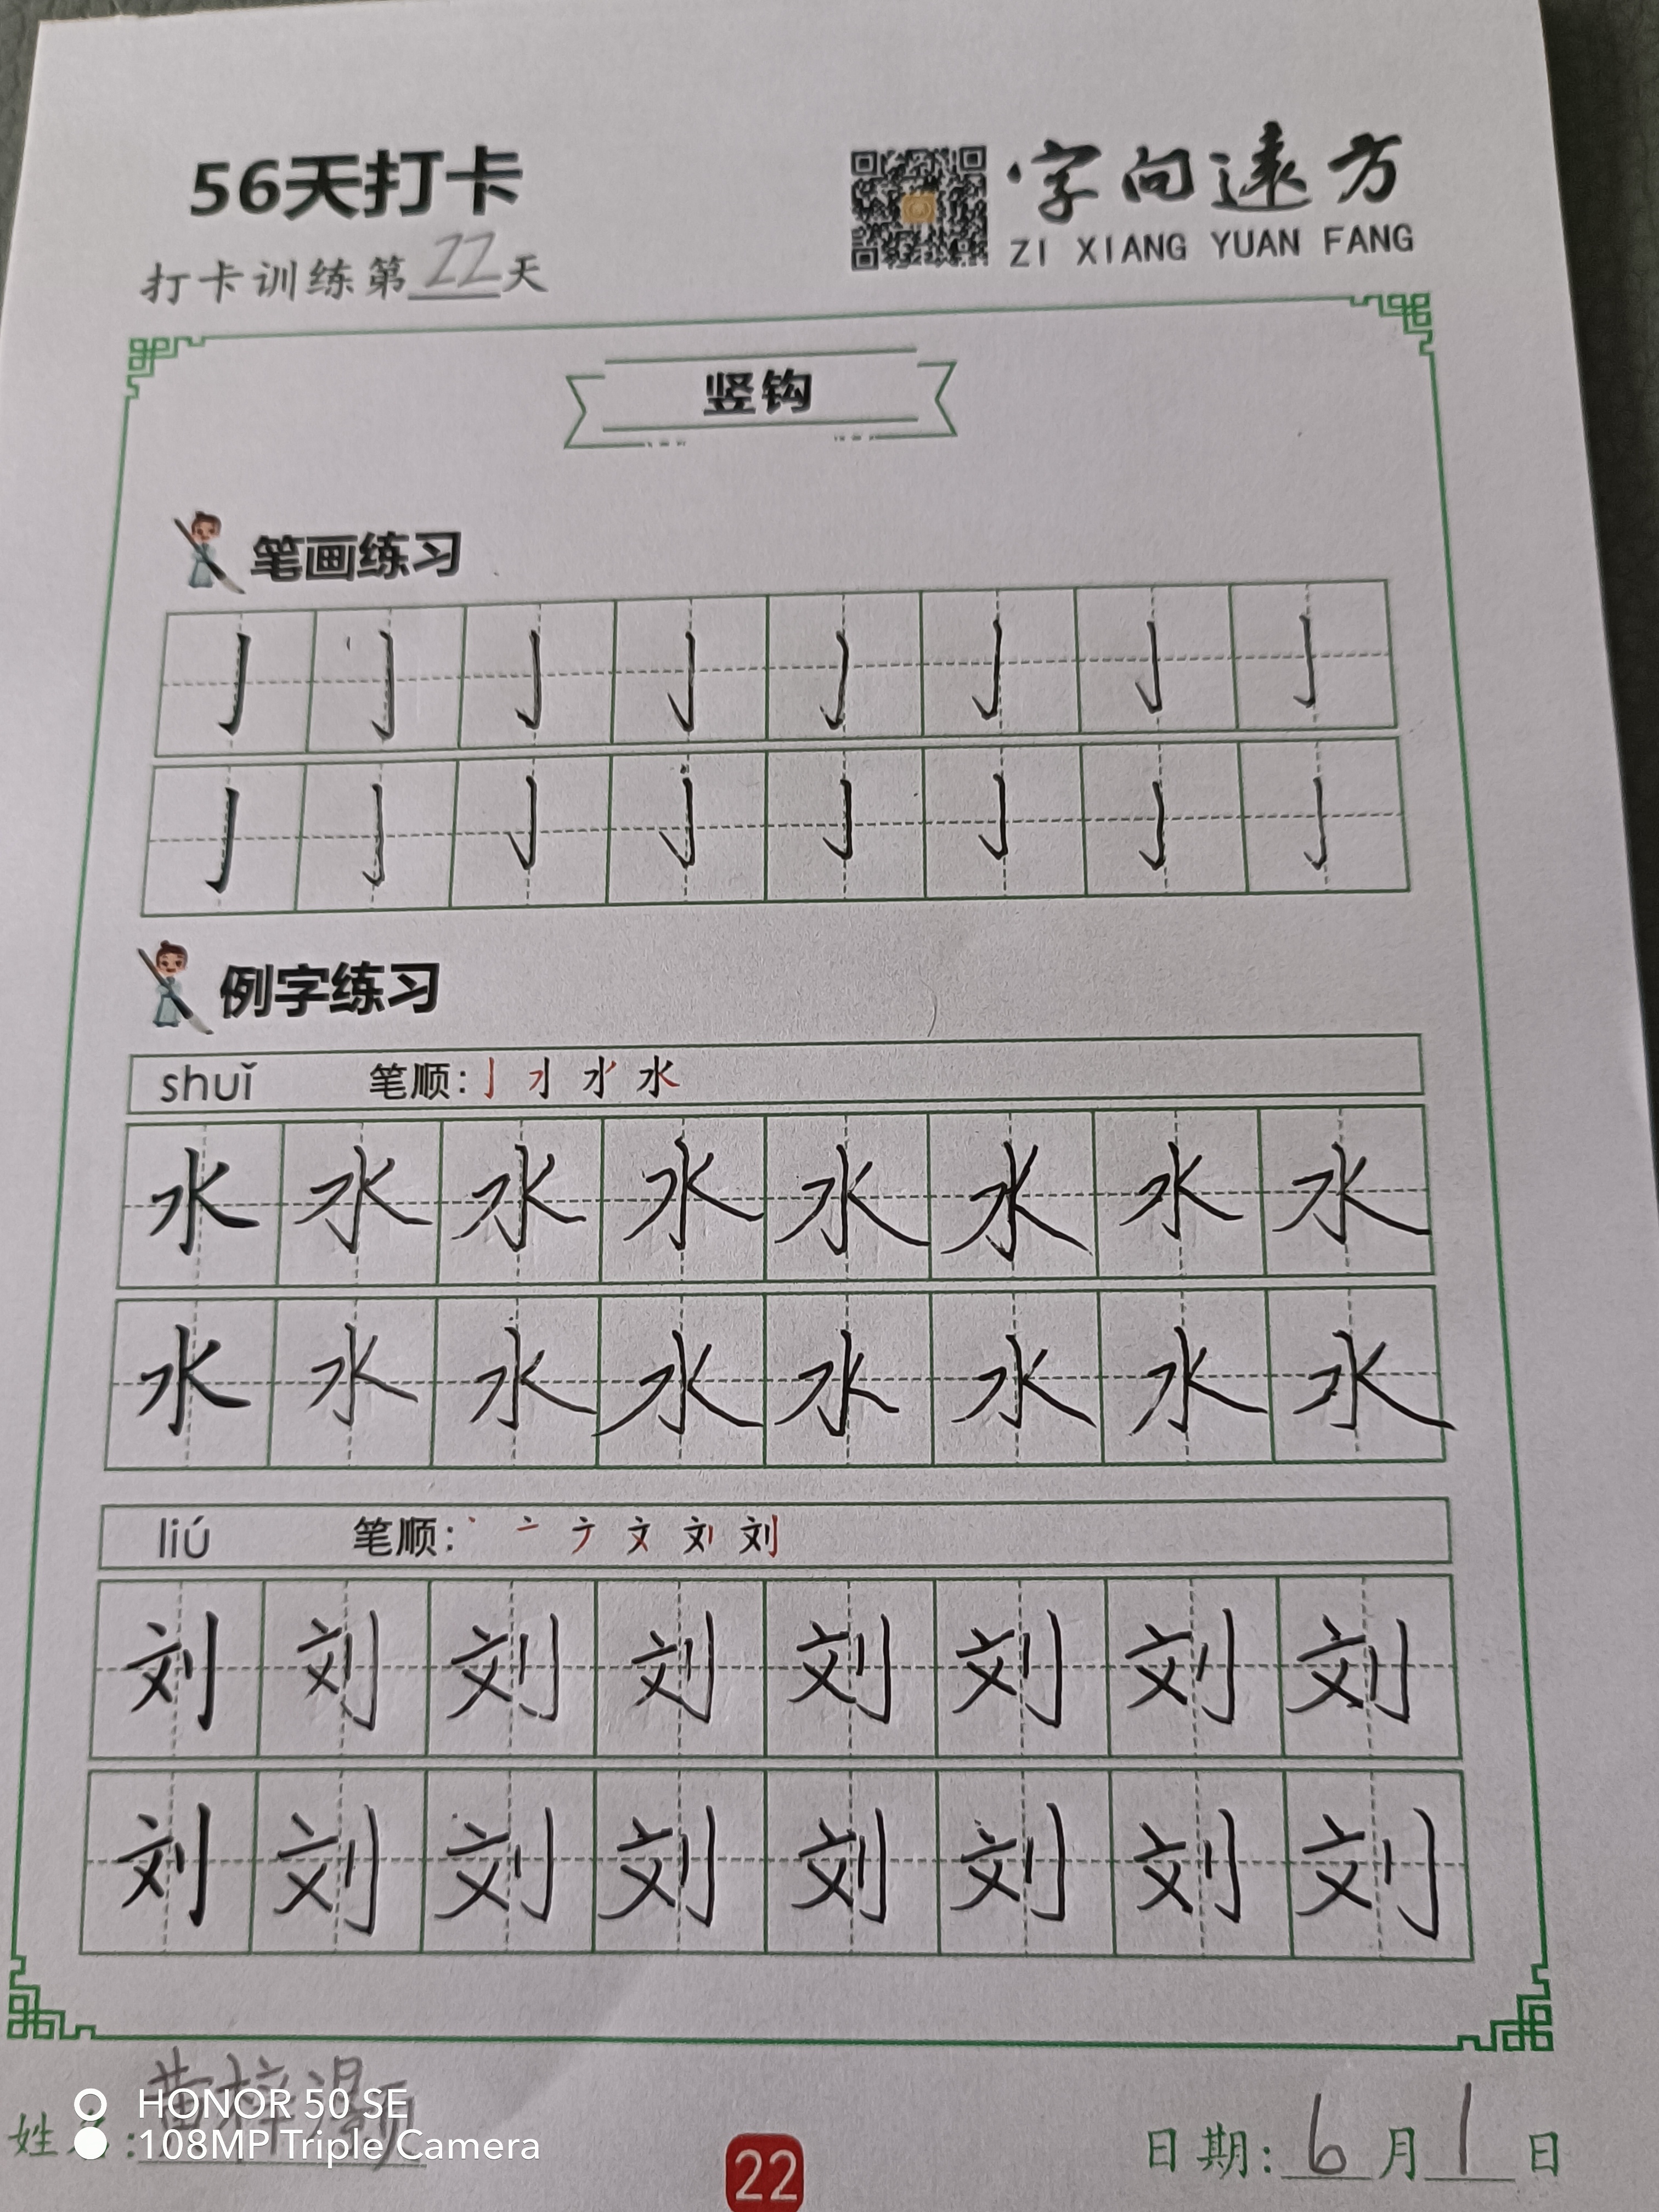 56天打卡
字向远方
ZI XIANG YUAN FANG
打卡训练第22天
竖钩
笔画练习
亅亅亅亅亅亅亅亅
亅亅亅亅亅亅亅亅
例字练习
shuǐ 笔顺：
水水水水水水水水
水水水水水水水水
liú 笔顺：
刘刘刘刘刘刘刘刘
刘刘刘刘刘刘刘刘
HONOR 50 SE
108MP Triple Camera
22
日期：6月1日